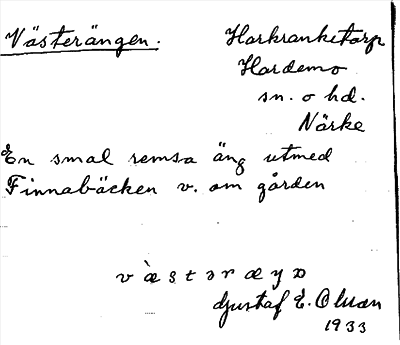 Västerängen. Harkranketorp
Hardemo
sn. o hd.
Närke
En smal remsa äng utmed
Finnabäcken v. om gården
Gustaf E. Olsson
1933